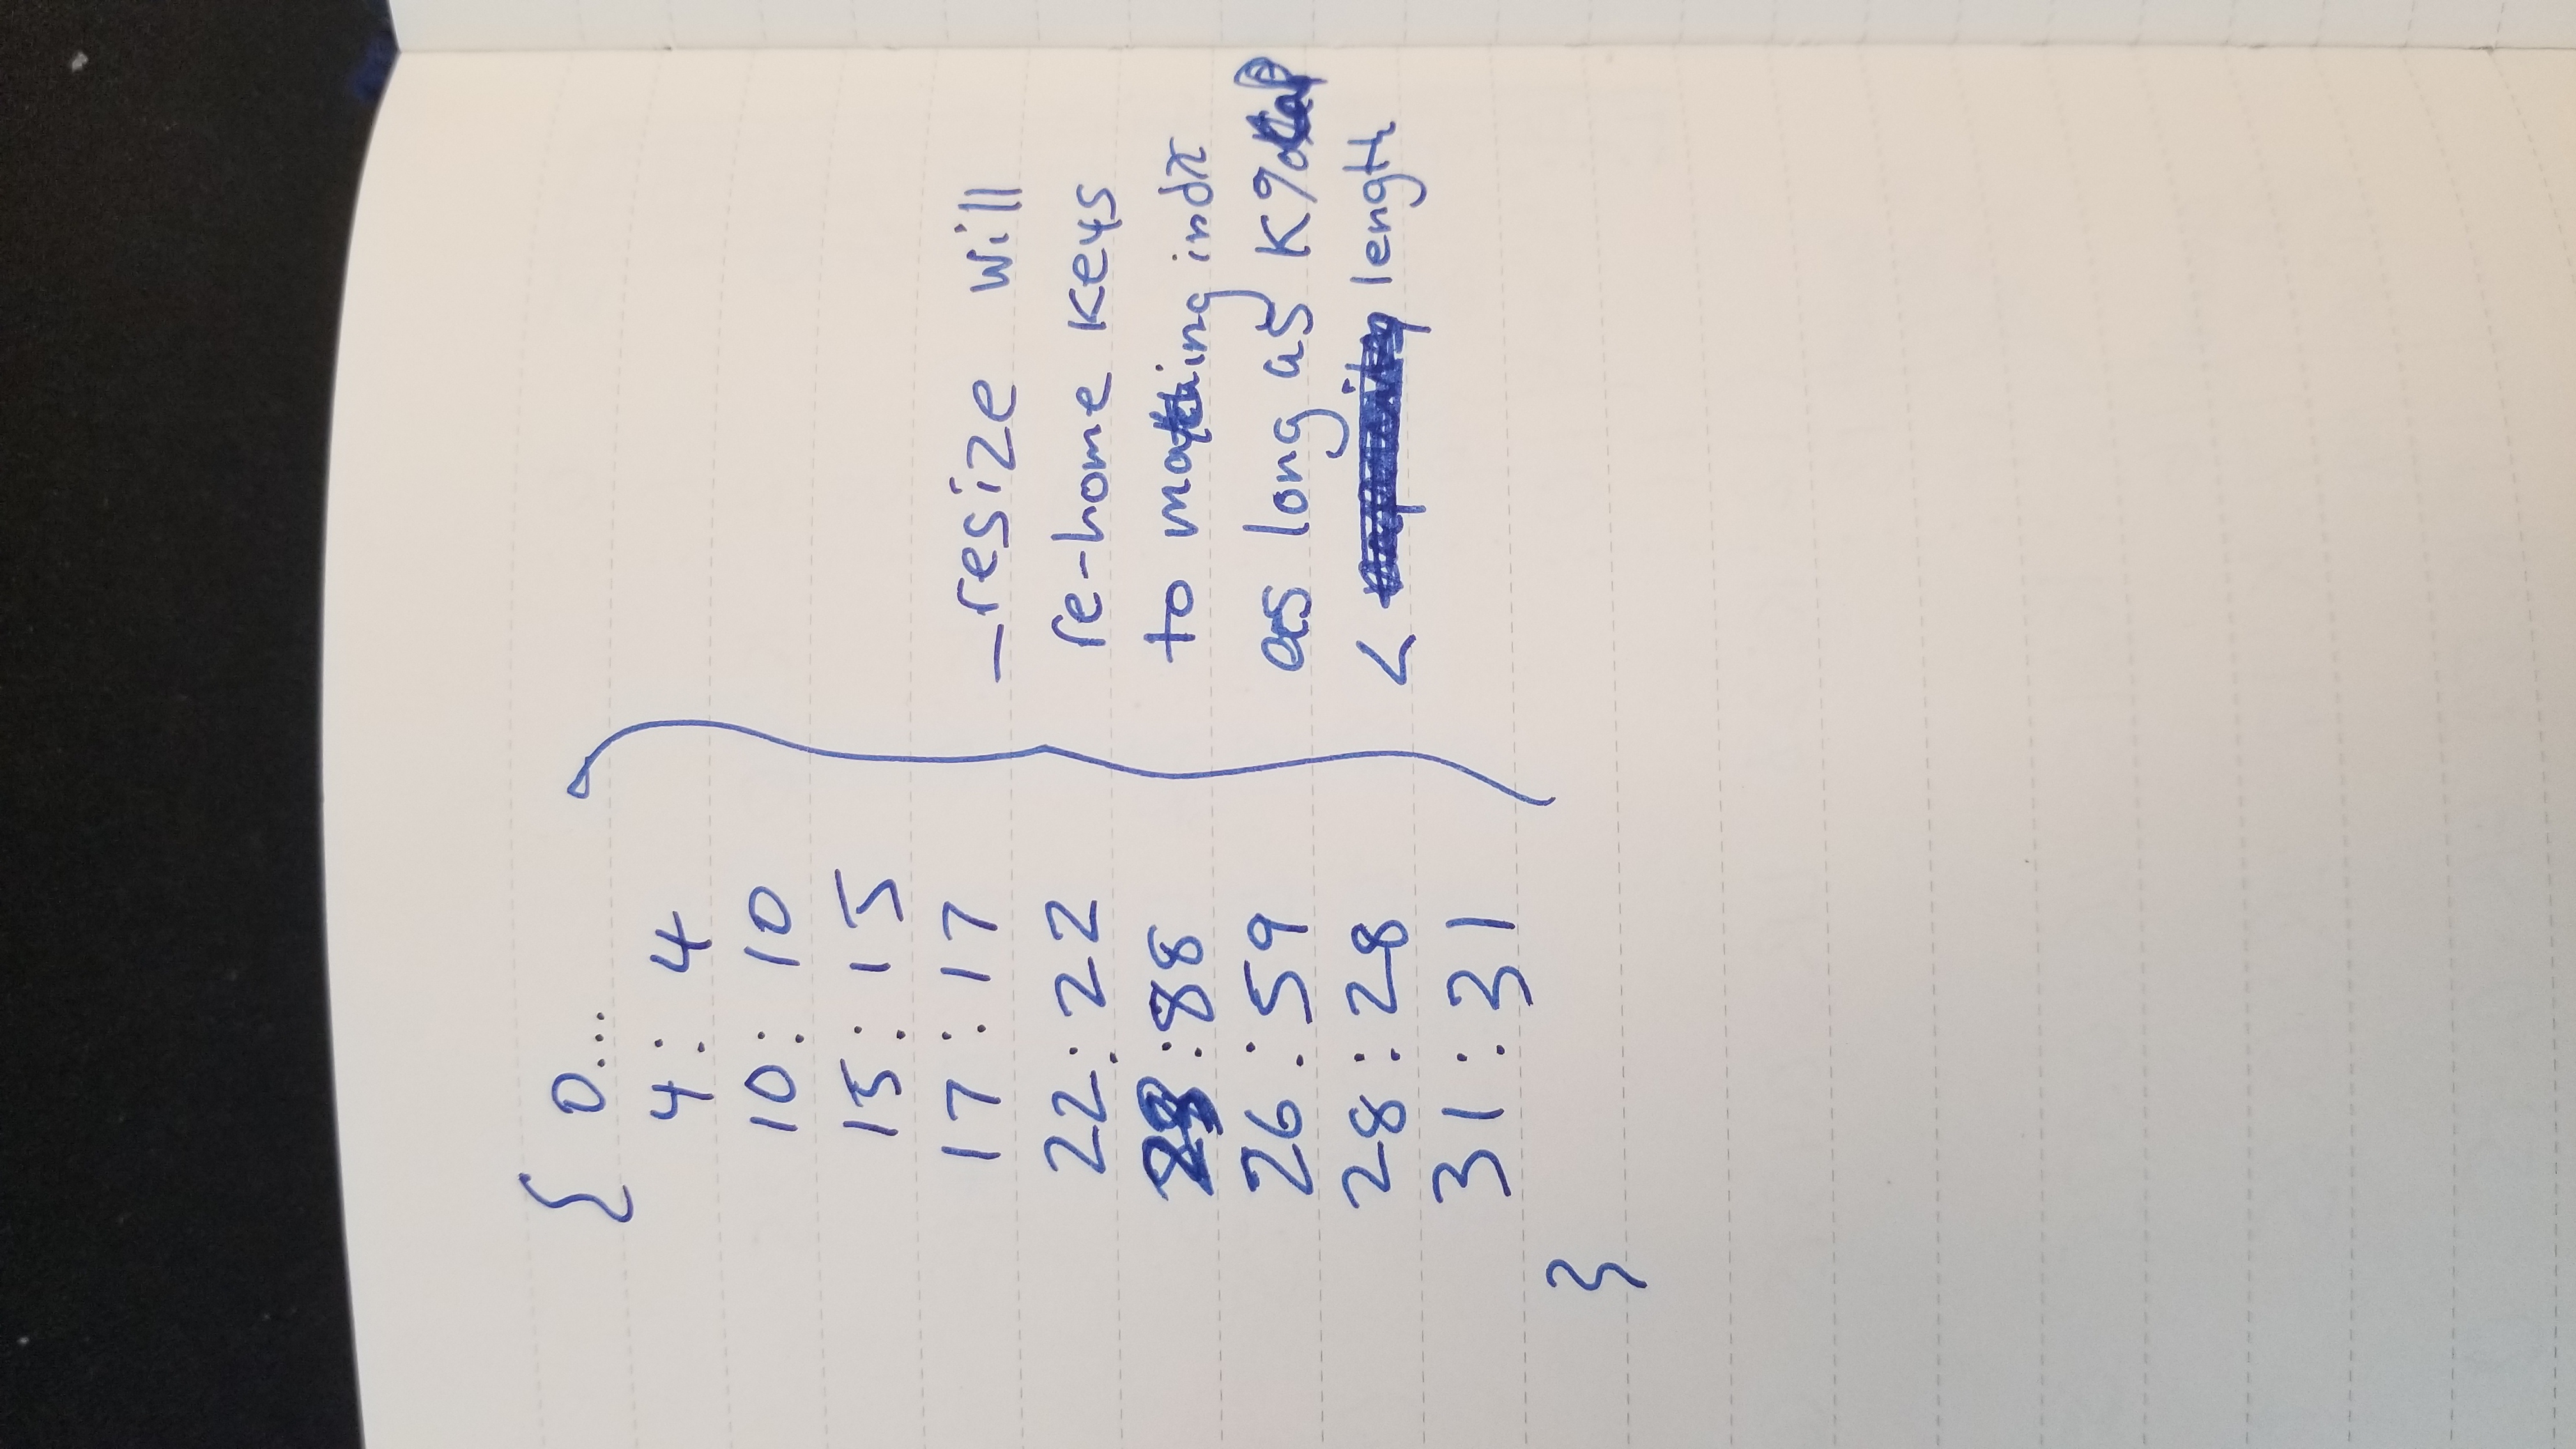 { 0...
4: 4
10: 10
15: 15
17: 17
22: 22
:88
26: 59
28: 28
31: 31
}
_resize will
re-home keys
to matching indx
as long as K%cap
< length